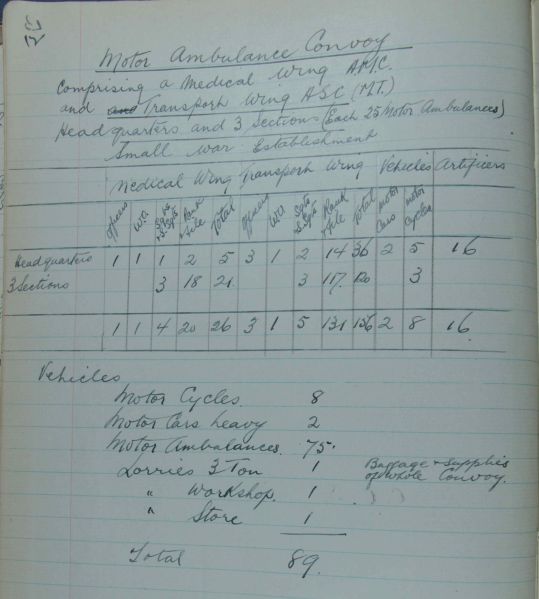 32
Motor Ambulance Convoy
Comprising a Medical Wing AMC.
and and Transport Wing ASC (MT.)
Headquarters and 3 Sections (Each 25 Motor Ambulances)
Small War Establishment
Medical Wing Transport Wing Vehicles Artificers
Officers W.O. Sgts & S.Sgts Rank & File Total Officers W.O. Sgts & S.Sgts Rank & File Total Motor Cars Motor Cycles
Headquarters 1 1 1 2 5 3 1 2 14 36 2 5 16
3 Sections 3 18 21. 3 117. 120 3
1 1 4 20 26 3 1 5 131 156 2 8 16.
Vehicles
Motor Cycles. 8
Motor Cars heavy 2
Motor Ambulances. 75.
Lorries 3 Ton 1 Baggage & Supplies
of whole Convoy.
" Workshop. 1
" Store 1
Total 89.